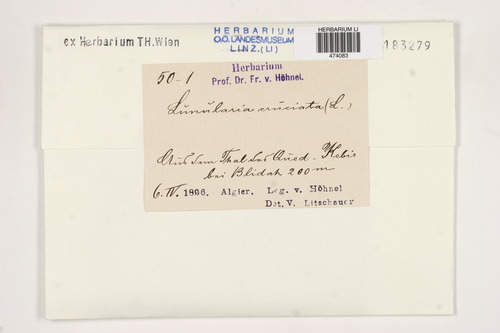 ex Herbarium TH.Wien
HERBARIUM
O.Ö. LANDESMUSEUM
LINZ. (LI)
HERBARIUM LI
474083
183279
Herbarium
Prof. Dr. Fr. v. Höhnel.
50-1
Lunularia cruciata (L.)
Aus dem Thal des Oued-Kebir
bei Blidah 200 m
6. IV. 1896. Algier. Leg. v. Höhnel
Det. V. Litschauer